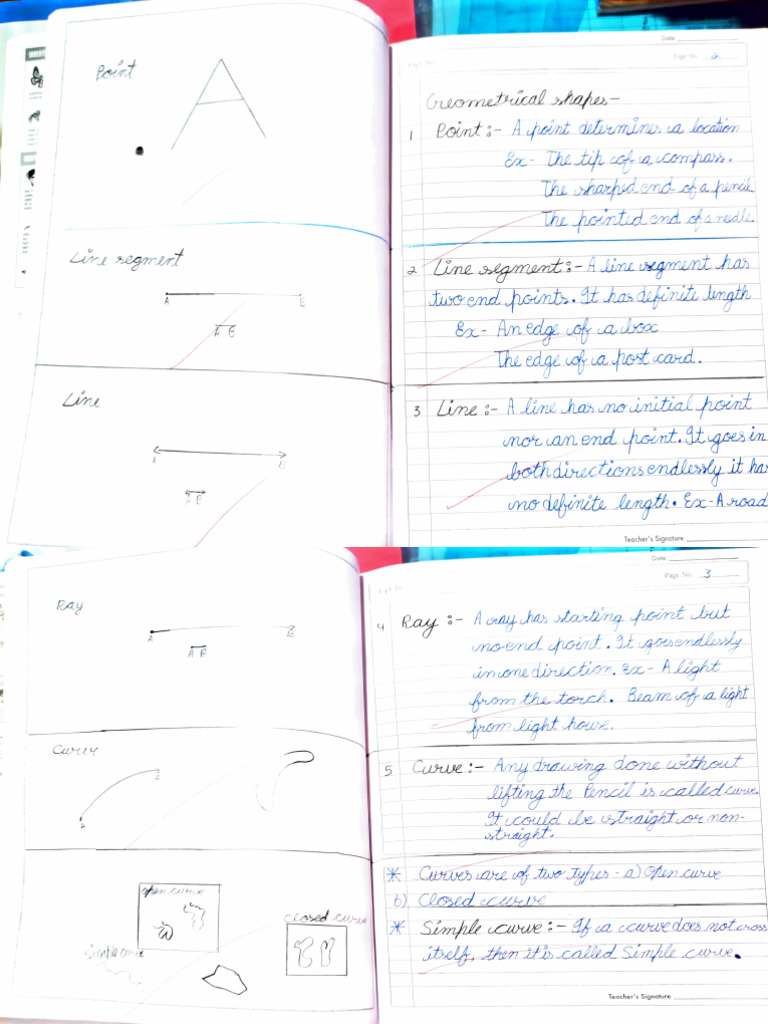 Point
A
Line segment
A B
A B
Line
A B
A B
Date
Page No. 2
Geometrical shapes-
1 Point :- A point determines a location
Ex- The tip of a compass.
The sharped end of a pencil.
The pointed end of a needle.
2 Line segment :- A line segment has
two end points. It has definite length
Ex- An edge of a box
The edge of a post card.
3 Line :- A line has no initial point
nor an end point. It goes in
both directions endlessly it has
no definite length. Ex- A road
Teacher's Signature
Ray
A B
A B
Curve
A B
open curve
closed curve
simple curve
Date
Page No. 3
4 Ray :- A ray has starting point but
no end point. It goes endlessly
in one direction. Ex- A light
from the torch. Beam of a light
from light house.
5 Curve :- Any drawing done without
lifting the Pencil is called curve.
It could be straight or non-
straight.
* Curves are of two types - a) Open curve
b) Closed curve
* Simple curve :- If a curve does not cross
itself, then it is called Simple curve.
Teacher's Signature